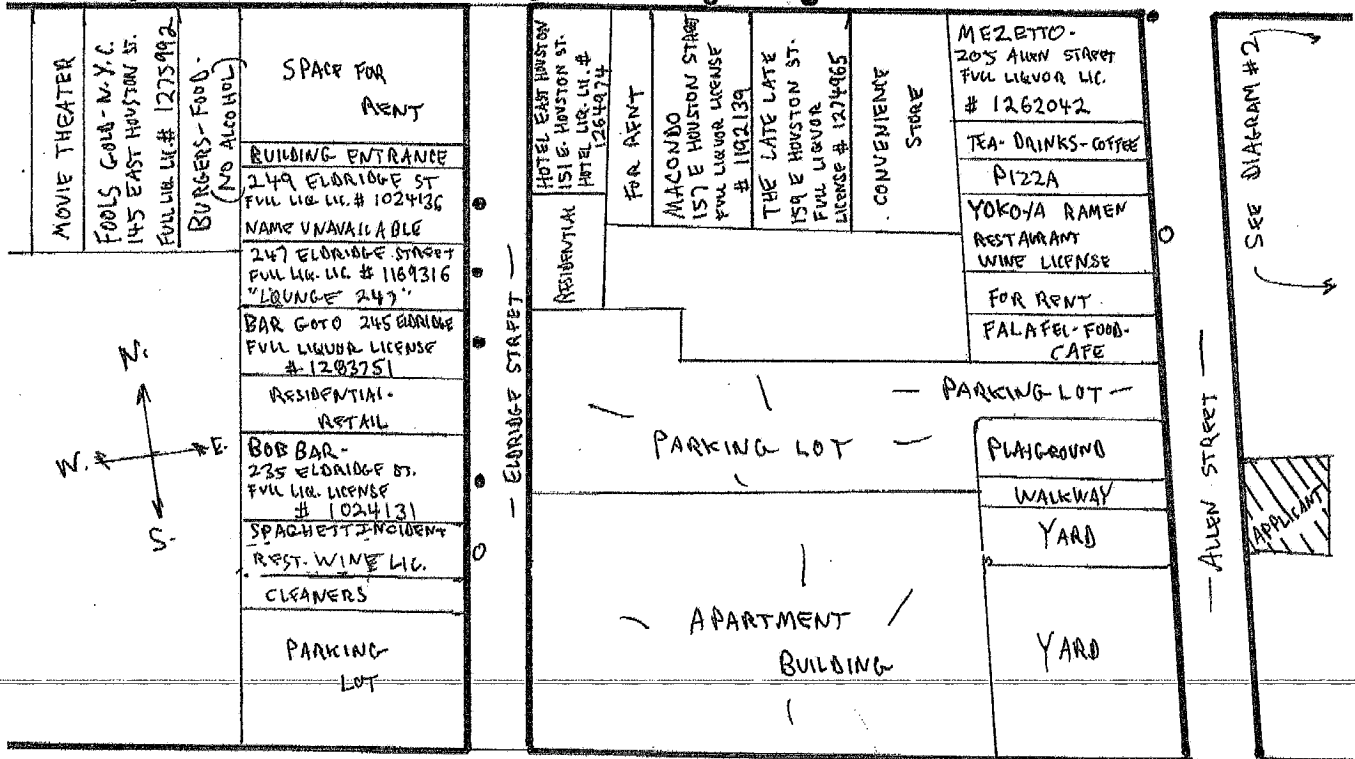 MOVIE THEATER
FOOLS GOLD-N.Y.C.
145 EAST HOUSTON ST.
FULL LIQ. LIC. # 1275992
BURGERS-FOOD-
(NO ALCOHOL)
SPACE FOR
RENT
BUILDING ENTRANCE
249 ELDRIDGE ST
FULL LIQ. LIC. # 1024136
NAME UNAVAILABLE
247 ELDRIDGE STREET
FULL LIQ. LIC. # 1169316
"LOUNGE 247"
BAR GOTO 245 ELDRIDGE
FULL LIQUOR LICENSE
# 1283751
RESIDENTIAL-
RETAIL
BOB BAR-
235 ELDRIDGE ST.
FULL LIQ. LICENSE
# 1024131
SPAGHETTINCIDENT
REST. WINE LIC.
CLEANERS
PARKING
LOT
N.
W.
E.
S.
— ELDRIDGE STREET —
HOTEL EAST HOUSTON
151 E. HOUSTON ST.
HOTEL LIQ. LIC. #
1264974
RESIDENTIAL
FOR RENT
MACONDO
157 E HOUSTON STREET
FULL LIQUOR LICENSE
# 1192139
THE LATE LATE
159 E HOUSTON ST.
FULL LIQUOR
LICENSE # 1274965
CONVENIENCE
STORE
MEZETTO-
205 ALLEN STREET
FULL LIQUOR LIC.
# 1262042
TEA-DRINKS-COFFEE
PIZZA
YOKOYA RAMEN
RESTAURANT
WINE LICENSE
FOR RENT
FALAFEL-FOOD-
CAFE
— PARKING LOT —
PARKING LOT —
PLAYGROUND
WALKWAY
YARD
APARTMENT
BUILDING
YARD
— ALLEN STREET —
SEE DIAGRAM #2
APPLICANT